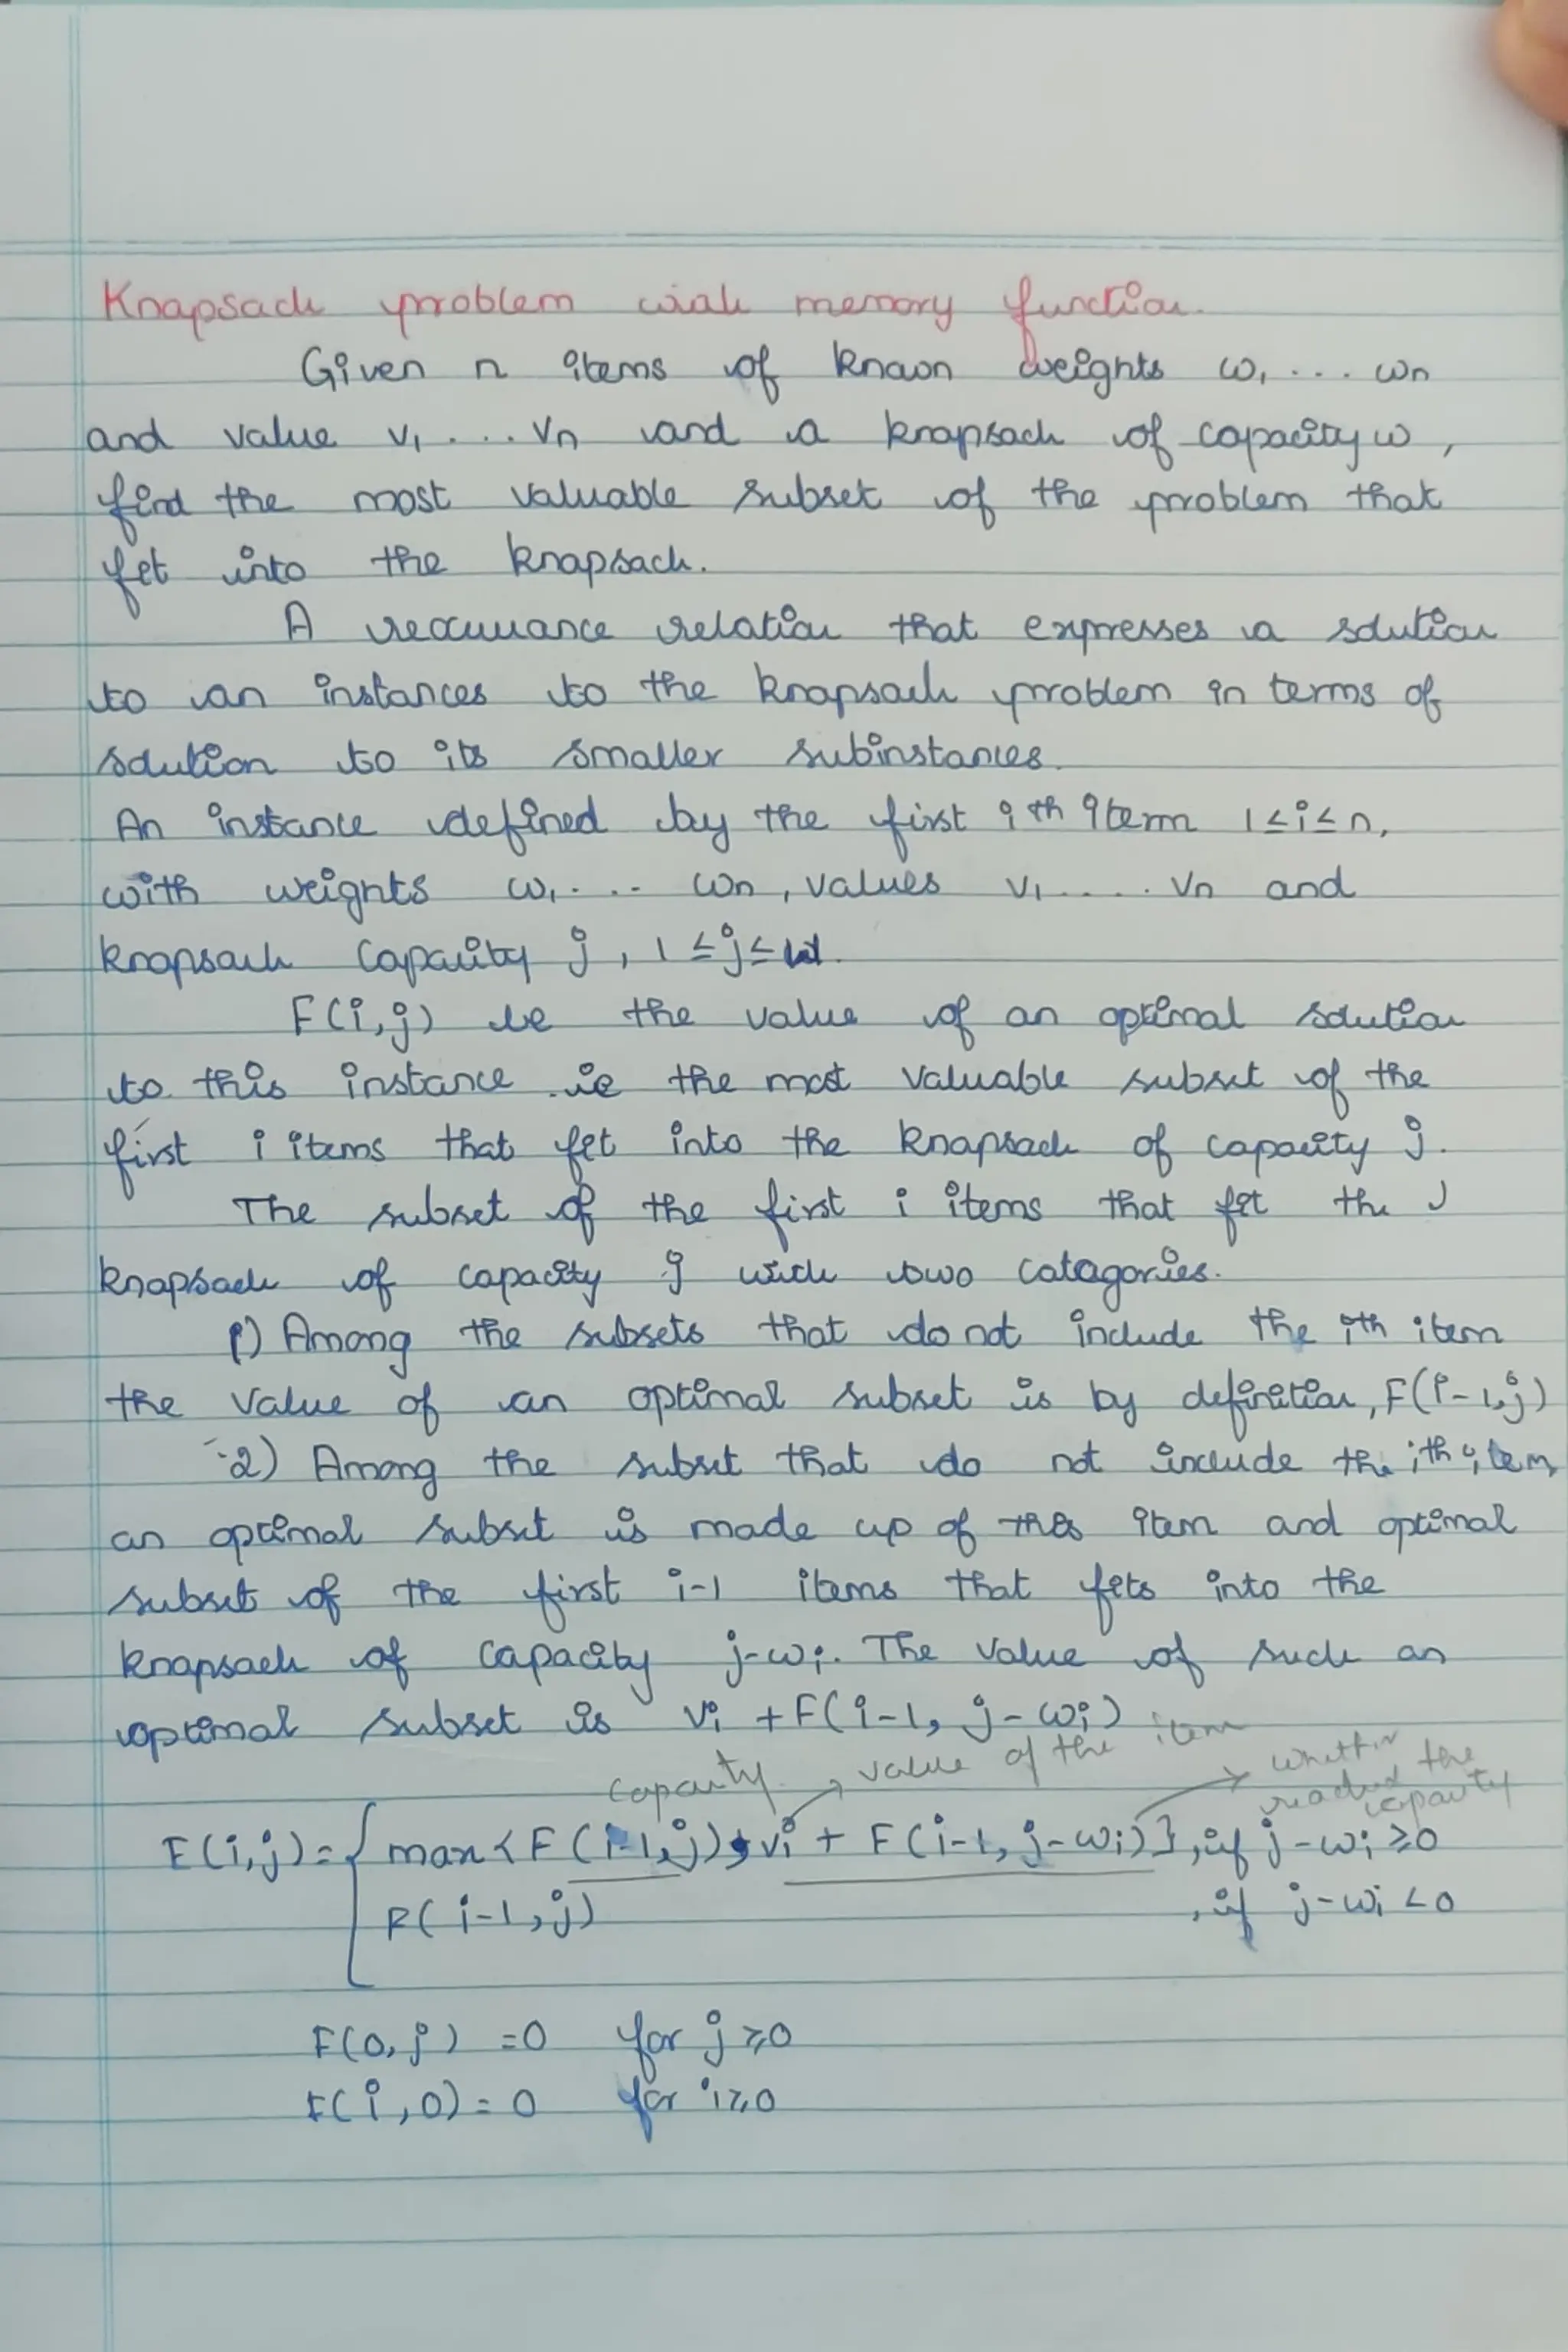 Knapsack problem with memory function.
Given n items of known weights w1 ... wn
and value v1 .... vn and a knapsack of capacity w,
find the most valuable subset of the problem that
fit into the knapsack.
A reccurrance relation that expresses a solution
to an instances to the knapsack problem in terms of
solution to its smaller subinstances.
An instance defined by the first ith item 1≤i≤n,
with weights w1.... wn, values v1..... vn and
knapsack capacity j, 1≤j≤w.
F(i,j) be the value of an optimal solution
to this instance ie the most valuable subset of the
first i items that fit into the knapsack of capacity j.
The subset of the first i items that fit the
knapsack of capacity j with two catagories.
1) Among the subsets that do not include the ith item
the value of an optimal subset is by definition, F(i-1,j)
2) Among the subset that do not include the ith item
an optimal subset is made up of this item and optimal
subset of the first i-1 items that fits into the
knapsack of capacity j-wi. The value of such an
optimal subset is vi + F(i-1, j-wi)
capacity → value of the item → whether the
reached capacity
F(i,j) = { max {F(i-1,j), vi + F(i-1, j-wi)}, if j-wi ≥0
F(i-1,j) , if j-wi <0
F(0,j) =0 for j≥0
F(i,0) = 0 for i≥0